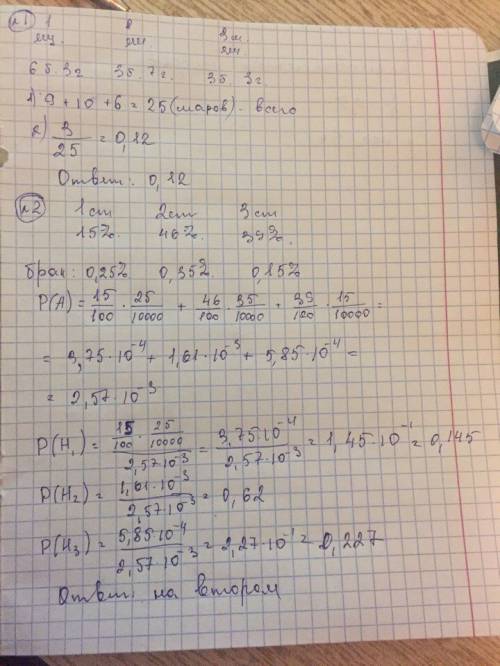 №1 1 2 3м.
ящ. ящ. ящ
6б.3г 3б.7г. 3б.3г.
1) 9 + 10 + 6 = 25 (шаров) - всего
2) 3/25 = 0,12
Ответ: 0,12
№2 1ст 2ст 3ст
15% 46% 39%.
брак: 0,25% 0,35% 0,15%
P(A) = 15/100 · 25/10000 + 46/100 · 35/10000 + 39/100 · 15/10000 =
= 3,75·10⁻⁴ + 1,61·10⁻³ + 5,85·10⁻⁴ =
= 2,57·10⁻³
P(H₁) = (15/100 · 25/10000)/(2,57·10⁻³) = (3,75·10⁻⁴)/(2,57·10⁻³) = 1,45·10⁻¹ = 0,145
P(H₂) = (1,61·10⁻³)/(2,57·10⁻³) = 0,62
P(H₃) = (5,85·10⁻⁴)/(2,57·10⁻³) = 2,27·10⁻¹ = 0,227
Ответ: на втором